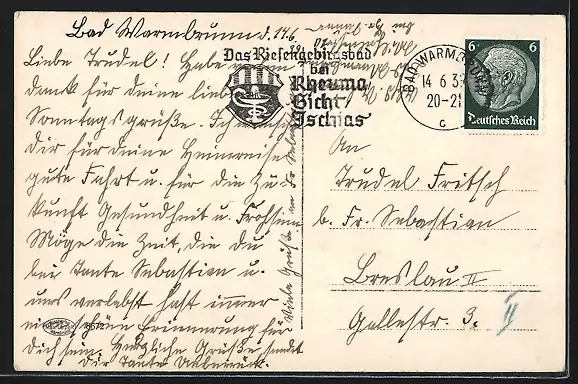 Bad Warmbrunn d. 14.6.
Liebe Trudel! Habe
dank für Deine lieb
Sonntagsgrüße.
Dir für Deine Heimreise
gute Fahrt u. für die Zu-
kunft Gesundheit u. Frohsinn
Möge die Zeit, die Du
bei Tante Sebastian u.
uns verlebst hast immer
eine schöne Erinnerung für
Dich sein. Herzliche Grüße sendet
Dir Tante
Viele Grüße an Fr. Sebastian
Das Riesengebirgsbad
bei
Rheuma
Gicht
Ischias
BAD WARMBRUNN
14 6 3
20-21
c
6 6
Deutsches Reich
An
Trudel Fritsch
b. Fr. Sebastian
Breslau II
Gallestr. 3. II